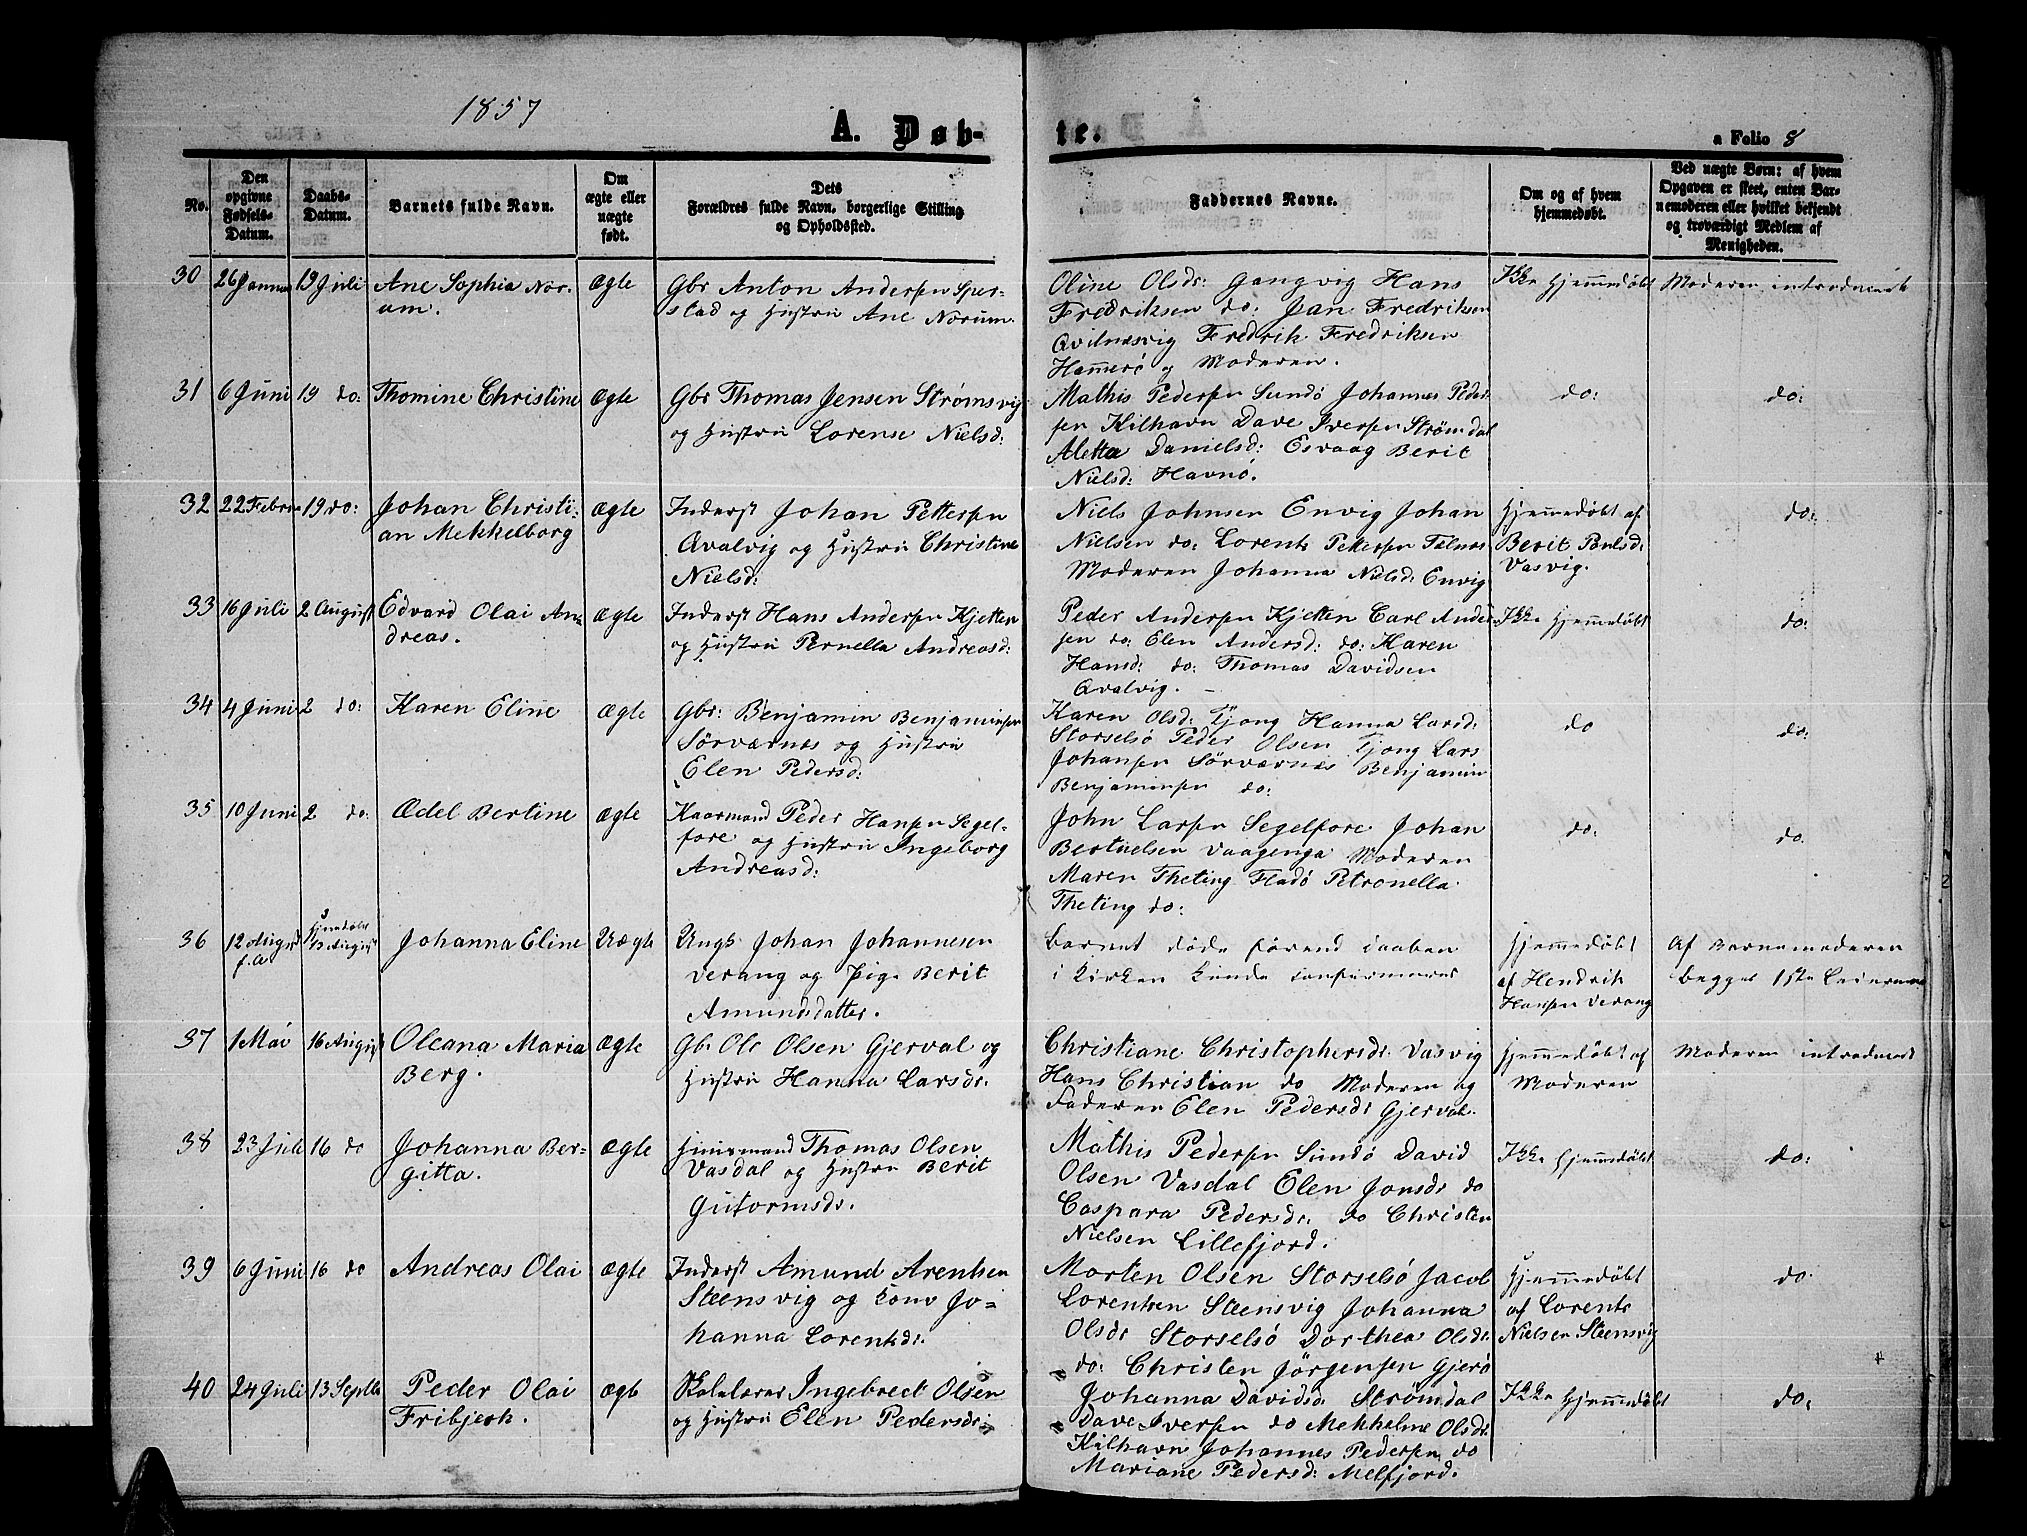 1857
A. Døb-
te.
a Folio 8
No.
Den
opgivne
Fødsels-
Datum.
Daabs-
Datum.
Barnets fulde Navn.
Om
ægte eller
uægte
født.
Dets
Forældres fulde Navn, borgerlige Stilling
og Opholdssted.
Faddernes Navne.
Om og af hvem
hjemmedøbt.
Ved uægte Børn: af hvem
Opgaven er skeet, enten Bar-
nemoderen eller hvilket bekjendt
og troværdigt Medlem af
Menigheden.
30 26 Januar 19 Juli Ane Sophia Nor-
um.
Ægte
Gbr Anton Andersen Sper-
stad og Hustru Ane Norum.
Oline Olsdr: Gangvig Hans
Fredriksen do: Jan Fredriksen
Qvilnesvig Fredrik Fredriksen
Hammerø og Moderen.
Ikke hjemmedøbt
Moderen introduceret
31 6 Juni 19 do: Thomine Christine Ægte
Gbr Thomas Jensen Strømsvig
og Hustru Lorense Nielsd:
Mathis Pedersen Sundø Johannes Peder-
sen Kilhavn Dave Iversen Strømdal
Aletta Danielsd: Esvaag Berit
Nielsd: Havnø.
do:
do:
32 22 Februar 19 do: Johan Christi-
an Mekkelborg
Ægte
Inderst Johan Pettersen
Qvalvig og Hustru Christine
Nielsd:
Niels Johnsen Envig Johan
Nielsen do: Lorents Pettersen Selnes
Moderen Johanna Nielsd: Envig
Hjemmedøbt af
Berit Poulsd:
Vasvig.
do:
33 16 Juli 2 August Edvard Olai An-
dreas.
Ægte
Inderst Hans Andersen Kjetten
og Hustru Pernella Andreasd:
Peder Andersen Kjetten Carl Ander-
sen do: Elen Andersd: do: Karen
Hansd: do: Thomas Davidsen
Qvalvig.
Ikke hjemmedøbt
do:
34 4 Juni 2 do: Karen Eline Ægte
Gbr: Benjamin Benjaminsen
Sørværnes og Hustru
Elen Pedersd:
Karen Olsd: Tjong Hanna Larsd:
Storselsø Peder Olsen Tjong Lars
Johansen Sørværnes Benjamin
Benjaminsen do:
do
do:
35 10 Juni 2 do: Ædel Bertine Ægte
Kaarmand Peder Hansen Segel-
fore og Hustru Ingeborg
Andreasd:
John Larsen Segelfore Johan
Bertuelsen Vaagenga Moderen
Maren Theting Fladø Petronella
Theting do:
do:
do.
36 12 August
f. a.
Hjemdøbt
13 August
Johanna Eline Uægte
Ungk. Johan Johannesen
Verang og Pige Berit
Amundsdatter.
Barnet døde førend Daaben
i Kirken kunde confirmeres
Hjemmedøbt
af Hendrik
Hansen Verang
Af Barnemoderen
begges 1ste Leiermaal
37 1 Mai 16 August Oleana Maria
Berg.
Ægte
Gb. Ole Olsen Gjerval og
Hustru Hanna Larsdr.
Christiane Christophersdr Vasvig
Hans Christian do Moderen og
Faderen Elen Pedersdr Gjerval.
Hjemmedøbt af
Moderen
Moderen introduceret
38 23 Juli 16 do Johanna Ber-
gitta.
Ægte
Huusmand Thomas Olsen
Vasdal og Hustru Berit
Gutormsdr.
Mathis Pedersen Sundø David
Olsen Vasdal Elen Jonsdr do
Caspara Pedersdr. do Christen
Nielsen Lillefjord.
Ikke hjemmedøbt
do:
39 6 Juni 16 do Andreas Olai Ægte
Inderst Amund Arentsen
Steensvig og Kone Jo-
hanna Lorentsdr.
Morten Olsen Storselsø Jacob
Lorentsen Steensvig Johanna
Olsdr Storselsø Dorthea Olsdr.
do: Christen Jørgensen Gjerø
Hjemmedøbt
af Lorents
Nielsen Steensvig
do.
40 24 Juli 13 Septbr Peder Olai
Fribjerh.
Ægte
Skolelærer Ingebrect Olsen
og Hustru Elen Pedersdr:
Johanna Davidsd: Strømdal
Dave Iversen do Mekholine Olsdr.
Kilhavn Johannes Pedersen do
Mariane Pedersd: Melfjord.
Ikke hjemmedøbt
do.